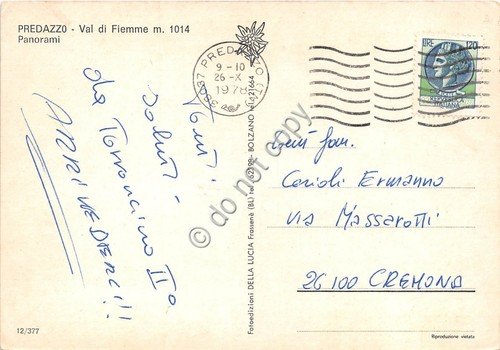 PREDAZZO - Val di Fiemme m. 1014
Panorami
38037 PREDAZZO (TN)
9-10
26-X
1978
LIRE 120
Tanti
Saluti
da Torroncino IIº
ARRIVEDERCI!!!
Gent. fam.
Carioli Ermanno
Via Massarotti
26100 CREMONA
Fotoedizioni DELLA LUCIA Frassenè (BL) tel.
BOLZANO
12/377
Riproduzione vietata
do not copy